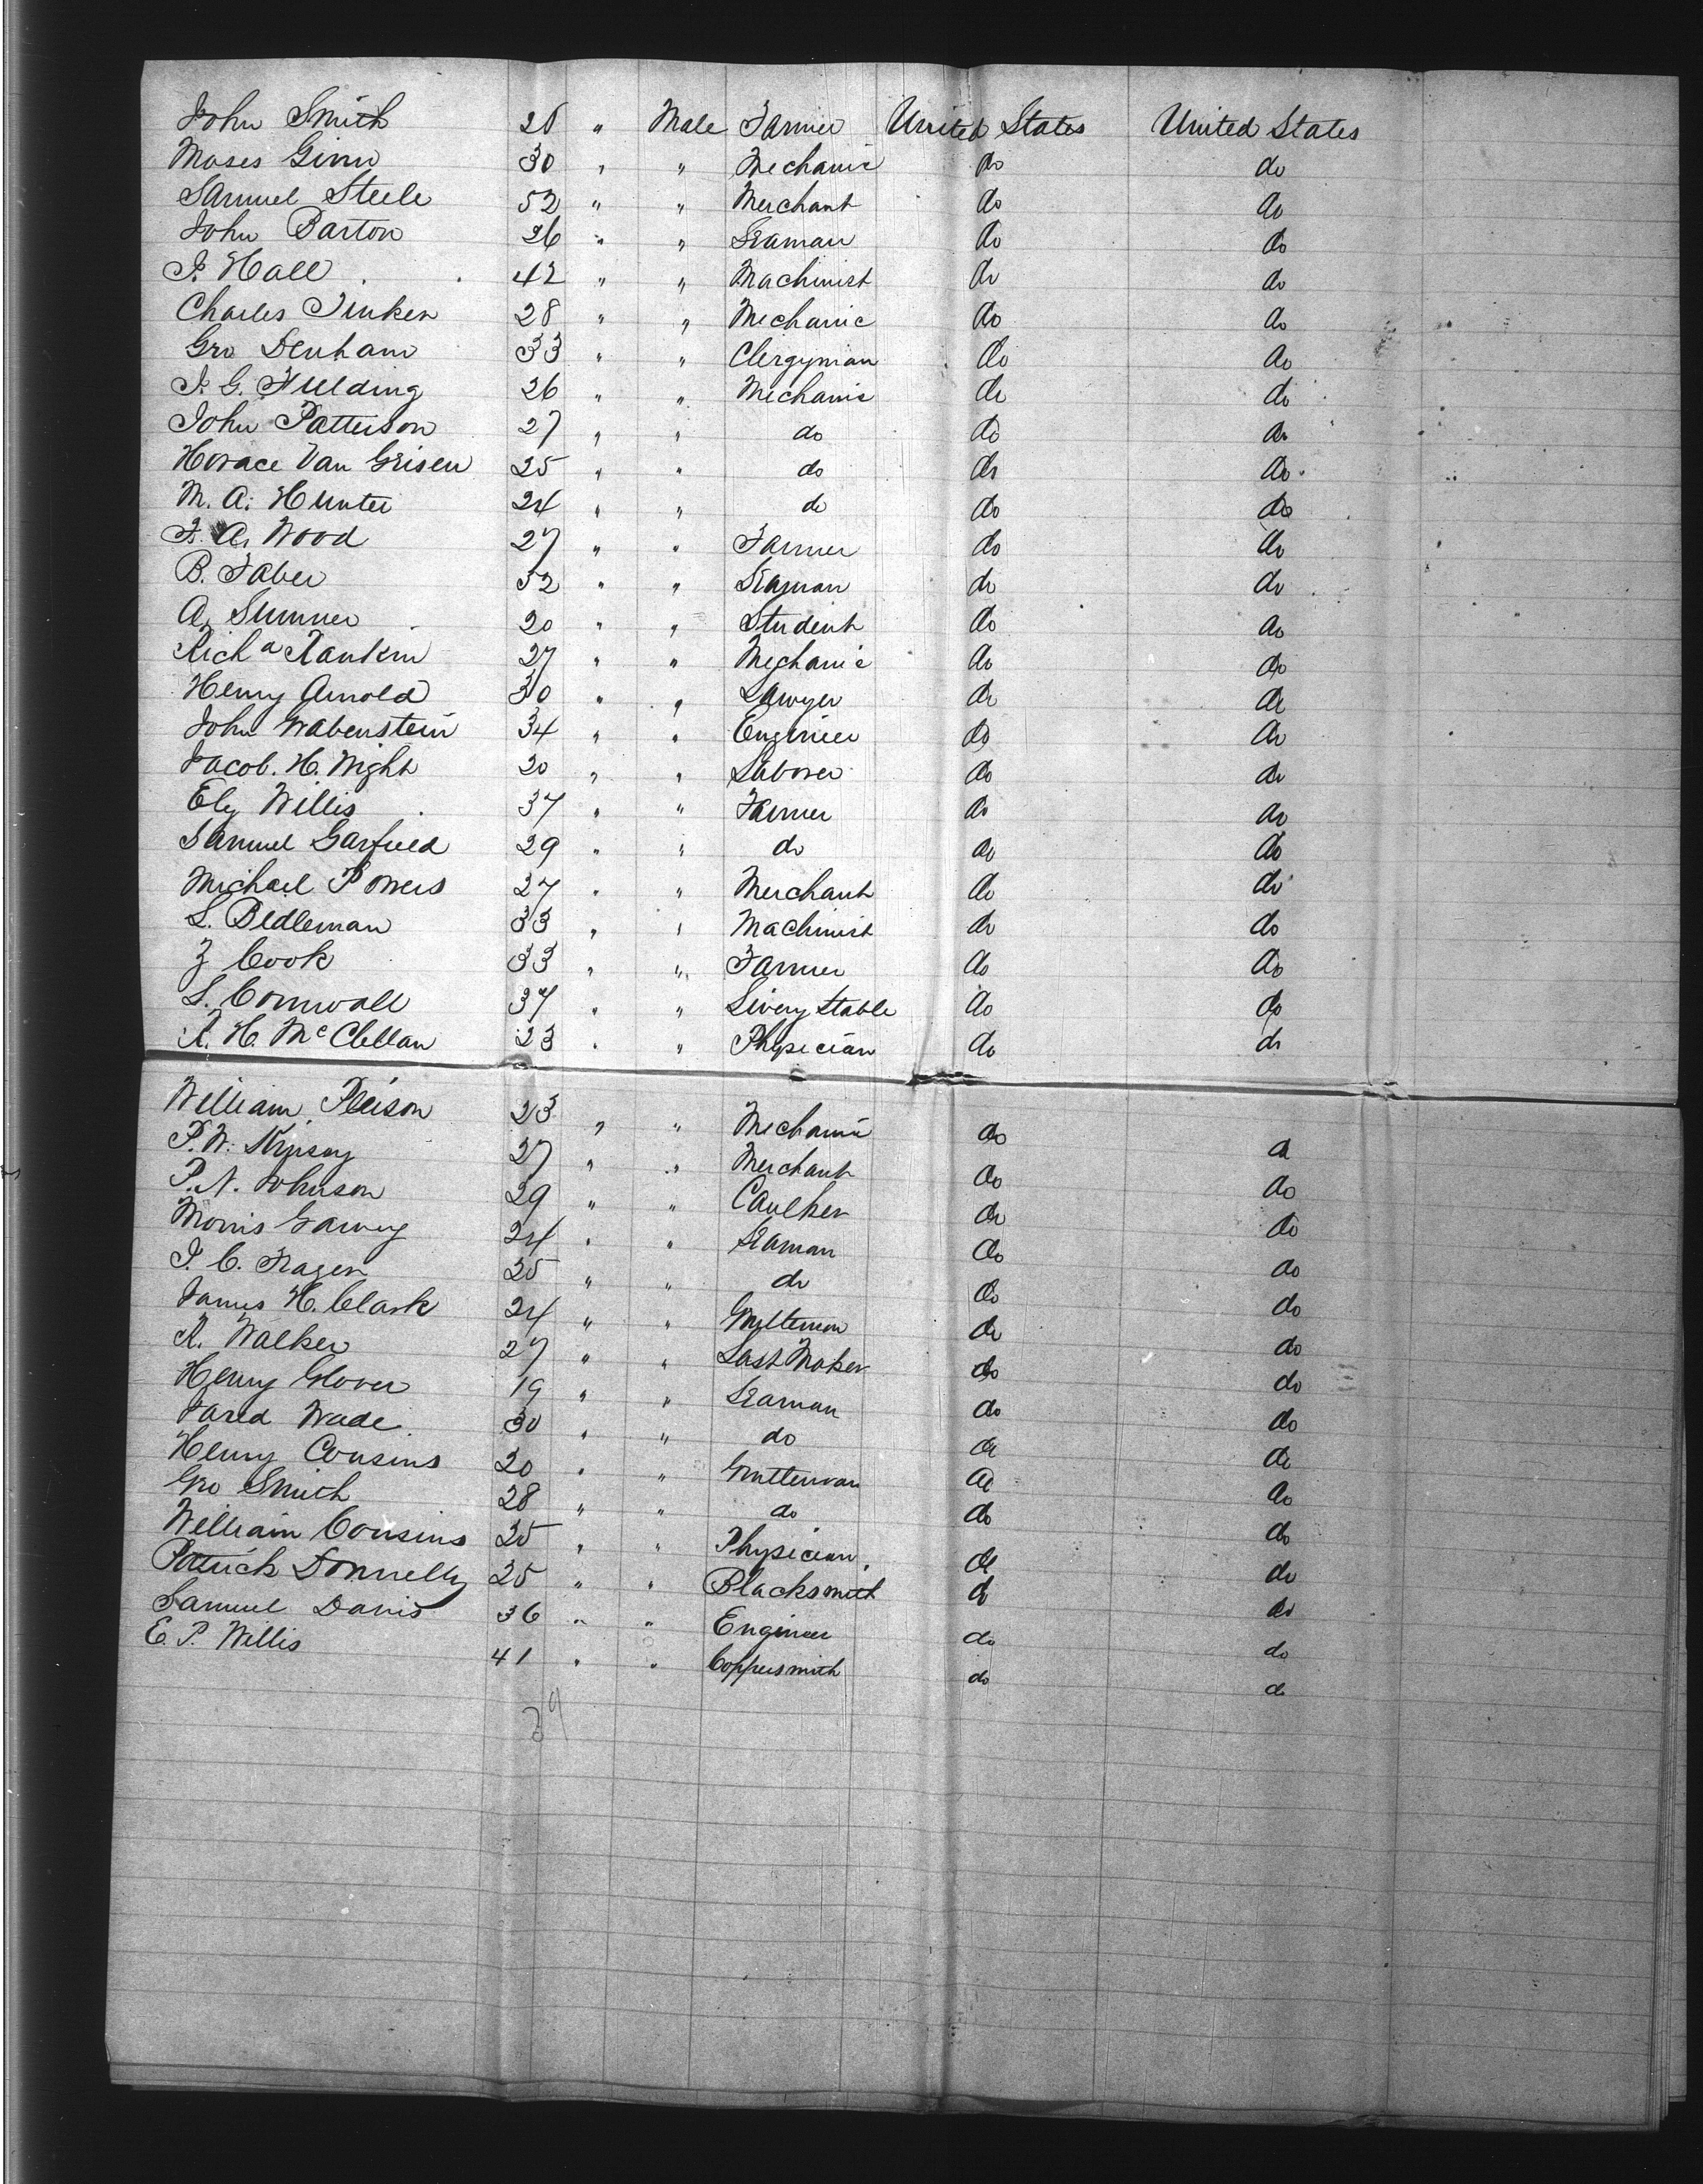 John Smith 28 " Male Farmer United States United States
Moses Ginn 30 " " Mechanic do do
Samuel Steele 52 " " Merchant do do
John Barton 26 " " Seaman do do
J. Hall 42 " " Machinist do do
Charles Tinker 28 " " Mechanic do do
Geo Denham 33 " " Clergyman do do
J. G. Fielding 26 " " Mechanic do do
John Patterson 27 " " do do do
Horace Van Grisen 25 " " do do do
M. A. Hunter 24 " " do do do
F. A. Wood 27 " " Farmer do do
B. Faber 52 " " Seaman do do
A. Sumner 20 " " Student do do
Richd Rankin 27 " " Mechanic do do
Henry Arnold 30 " " Lawyer do do
John Wabenstein 34 " " Engineer do do
Jacob. H. Wight 20 " " Laborer do do
Ely Willis 37 " " Farmer do do
Samuel Garfield 29 " " do do do
Michael Powers 27 " " Merchant do do
L. Bedleman 33 " " Machinist do do
Z Cook 33 " " Farmer do do
L. Cornwall 37 " " Livery Stable do do
R. H. McClellan 23 " " Physician do do
William Peirson 23 " " Mechanic do do
P. W. 27 " " Merchant do do
P. N. Johnson 29 " " Caulker do do
Morris Garvey 24 " " Seaman do do
J. C. Frazer 25 " " do do do
James H. Clark 24 " " do do
R. Walker 27 " " Last Maker do do
Henry Glover 19 " " Seaman do do
Jared Wade 30 " " do do do
Henry Cousins 20 " " do do
Geo Smith 28 " " do do do
William Cousins 25 " " Physician do do
Patrick Donnelly 25 " " Blacksmith do do
Samuel Davis 36 " " Engineer do do
E. P. Willis 41 " " Coppersmith do do
39